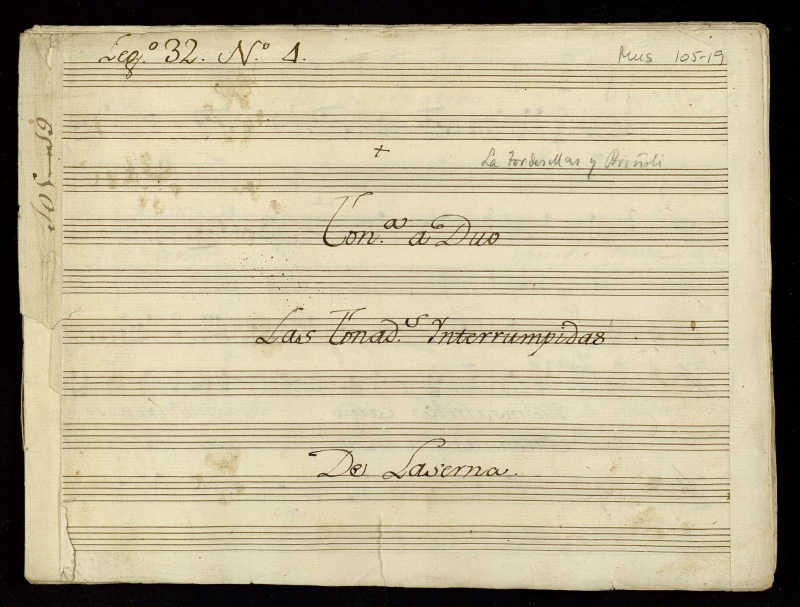 Leg.º 32. N.º 4.
Mus 105-19
+
La Tordesillas y Briñoli
Ton.ª a Duo
Las Tonad.s Interrumpidas
De Laserna.
105-19